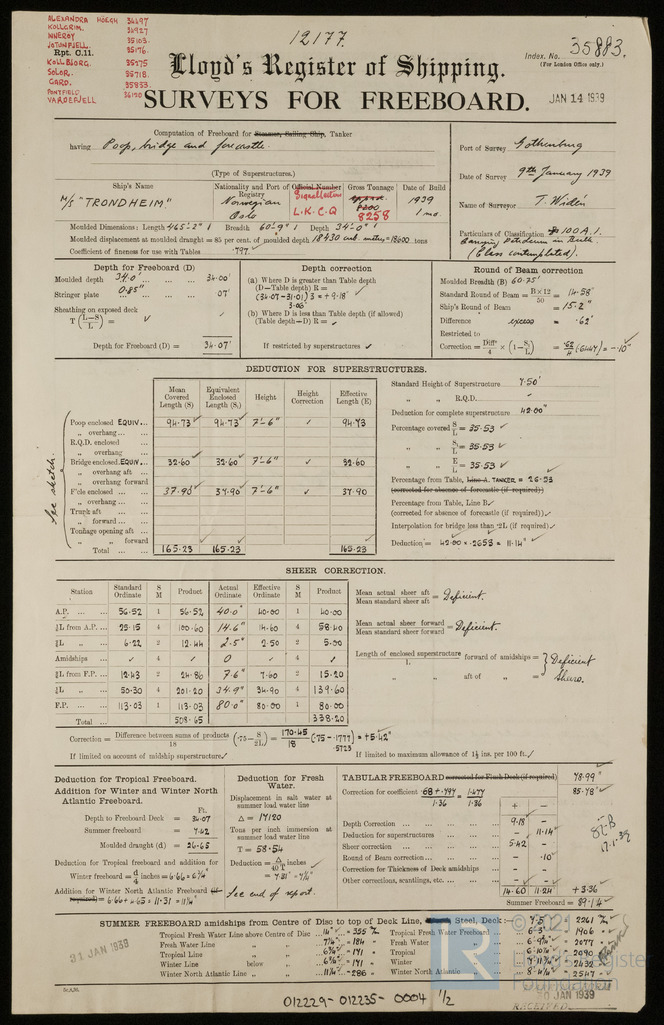 ALEXANDRA HÖEGH 34697
KOLLGRIM. 34927
NYEROY 35103.
JOTUNFJELL. 35176.
Rpt. C.11.
KOLLBJORG. 35275
SOLOR. 35718.
GARD. 35853.
PONTFIELD.
VARDEFJELL 36120
12177.
Index. No. 35883.
(For London Office only.)
Lloyd's Register of Shipping.
SURVEYS FOR FREEBOARD.
JAN 14 1939
Computation of Freeboard for Steamer, Sailing Ship, Tanker
having Poop, bridge and forecastle.
(Type of Superstructures.)
Port of Survey Gothenburg
Date of Survey 9th January 1939
Name of Surveyor T. Widén
Particulars of Classification 100 A.1.
Carrying Petroleum in Bulk
(Class contemplated).
Ship's Name
Nationality and Port of Registry
Official Number
Gross Tonnage
Date of Build
M/S "TRONDHEIM"
Norwegian
Oslo
Signal letters
L.K.C.Q
8200
8258
1939
1 mo.
Moulded Dimensions: Length 465'-2" Breadth 60'-9" Depth 34'-0"
Moulded displacement at moulded draught = 85 per cent. of moulded depth 18430 cub. metres = 18600 tons
Coefficient of fineness for use with Tables .797
Depth for Freeboard (D)
Moulded depth 34'.0" 34.00'
Stringer plate 0.85" .07'
Sheathing on exposed deck
T (L-S/L) =
Depth for Freeboard (D) = 34.07'
Depth correction
(a) Where D is greater than Table depth
(D—Table depth) R =
(34.07-31.01) 3 = +9.18"
3.06'
(b) Where D is less than Table depth (if allowed)
(Table depth—D) R =
If restricted by superstructures
Round of Beam correction
Moulded Breadth (B) 60.75'
Standard Round of Beam = B×12/50 = 14.58"
Ship's Round of Beam = 15.2"
Difference excess = .62"
Restricted to
Correction = Diff/4 × (1-S/L) = .62/4 (.6447) = -.10"
DEDUCTION FOR SUPERSTRUCTURES.
Mean Covered Length (S)
Equivalent Enclosed Length (S₁)
Height
Height Correction
Effective Length (E)
See sketch.
Poop enclosed EQUIV. 94.73 94.73 7'-6" 94.73
„ overhang
R.Q.D. enclosed
„ overhang
Bridge enclosed EQUIV. 32.60 32.60 7'-6" 32.60
„ overhang aft
„ overhang forward
F'cle enclosed 37.90 37.90 7'-6" 37.90
„ overhang
Trunk aft
„ forward
Tonnage opening aft
„ „ forward
Total 165.23 165.23 165.23
Standard Height of Superstructure 7.50'
„ „ R.Q.D.
Deduction for complete superstructure 42.00"
Percentage covered S/L = 35.53
„ „ S₁/L = 35.53
„ „ E/L = 35.53
Percentage from Table, Line A. TANKER = 26.53
(corrected for absence of forecastle (if required))
Percentage from Table, Line B
(corrected for absence of forecastle (if required))
Interpolation for bridge less than ·2L (if required)
Deduction = 42.00 × .2653 = 11.14"
SHEER CORRECTION.
Station
Standard Ordinate
S M
Product
Actual Ordinate
Effective Ordinate
S M
Product
A.P. 56.52 1 56.52 40.0" 40.00 1 40.00
⅙L from A.P. 25.15 4 100.60 14.6" 14.60 4 58.40
⅓L „ 6.22 2 12.44 2.5" 2.50 2 5.00
Amidships 4 0 4
⅓L from F.P. 12.43 2 24.86 7.6" 7.60 2 15.20
⅙L „ 50.30 4 201.20 34.9" 34.90 4 139.60
F.P. 113.03 1 113.03 80.0" 80.00 1 80.00
Total 508.65 338.20
Mean actual sheer aft / Mean standard sheer aft = Deficient.
Mean actual sheer forward / Mean standard sheer forward = Deficient.
Length of enclosed superstructure / L forward of amidships = } Deficient
„ „ aft of „ = Sheer.
Correction = Difference between sums of products / 18 (·75 - S/2L) = 170.45/18 (.75-.1777) = +5.42"
.5723
If limited on account of midship superstructure.
If limited to maximum allowance of 1½ ins. per 100 ft.
Deduction for Tropical Freeboard.
Addition for Winter and Winter North
Atlantic Freeboard.
Ft.
Depth to Freeboard Deck = 34.07
Summer freeboard = 7.42
Moulded draught (d) = 26.65
Deduction for Tropical freeboard and addition for
Winter freeboard = d/4 inches = 6.66 = 6¾"
Addition for Winter North Atlantic Freeboard (if
required) = 6.66 + 4.65 = 11.31 = 11¼"
Deduction for Fresh
Water.
Displacement in salt water at
summer load water line
Δ = 17120
Tons per inch immersion at
summer load water line
T = 58.54
Deduction = Δ/40T inches
= 7.31 = 7¼"
See end of report.
TABULAR FREEBOARD corrected for Flush Deck (if required) 78.99"
Correction for coefficient .68+.797/1.36 = 1.477/1.36 85.78"
+ -
Depth Correction 9.18 -
Deduction for superstructures - 11.14"
Sheer correction 5.42 -
Round of Beam correction - .10"
Correction for Thickness of Deck amidships - -
Other corrections, scantlings, etc. - -
14.60 11.24 +3.36"
Summer Freeboard = 89.14"
17.1.39
SUMMER FREEBOARD amidships from Centre of Disc to top of Deck Line, Steel, Deck:— 7'.5" 2261 m/m
Tropical Fresh Water Line above Centre of Disc 14" = 355 m/m Tropical Fresh Water Freeboard 6'-3" 1906
Fresh Water Line „ „ 7¼" = 184 Fresh Water „ 6'-9¾" 2077
Tropical Line „ „ 6¾" = 171 Tropical „ 6'-10¼" 2090
Winter Line below „ 6¾" = 171 Winter „ 7'-11¾" 2432
Winter North Atlantic Line „ „ 11¼" = 286 Winter North Atlantic „ 8'-4¼" 2547
31 JAN 1939
© 2021
LR
Lloyd's Register
Foundation
30 JAN 1939
RECEIVED
012229-012235-0004 1/2